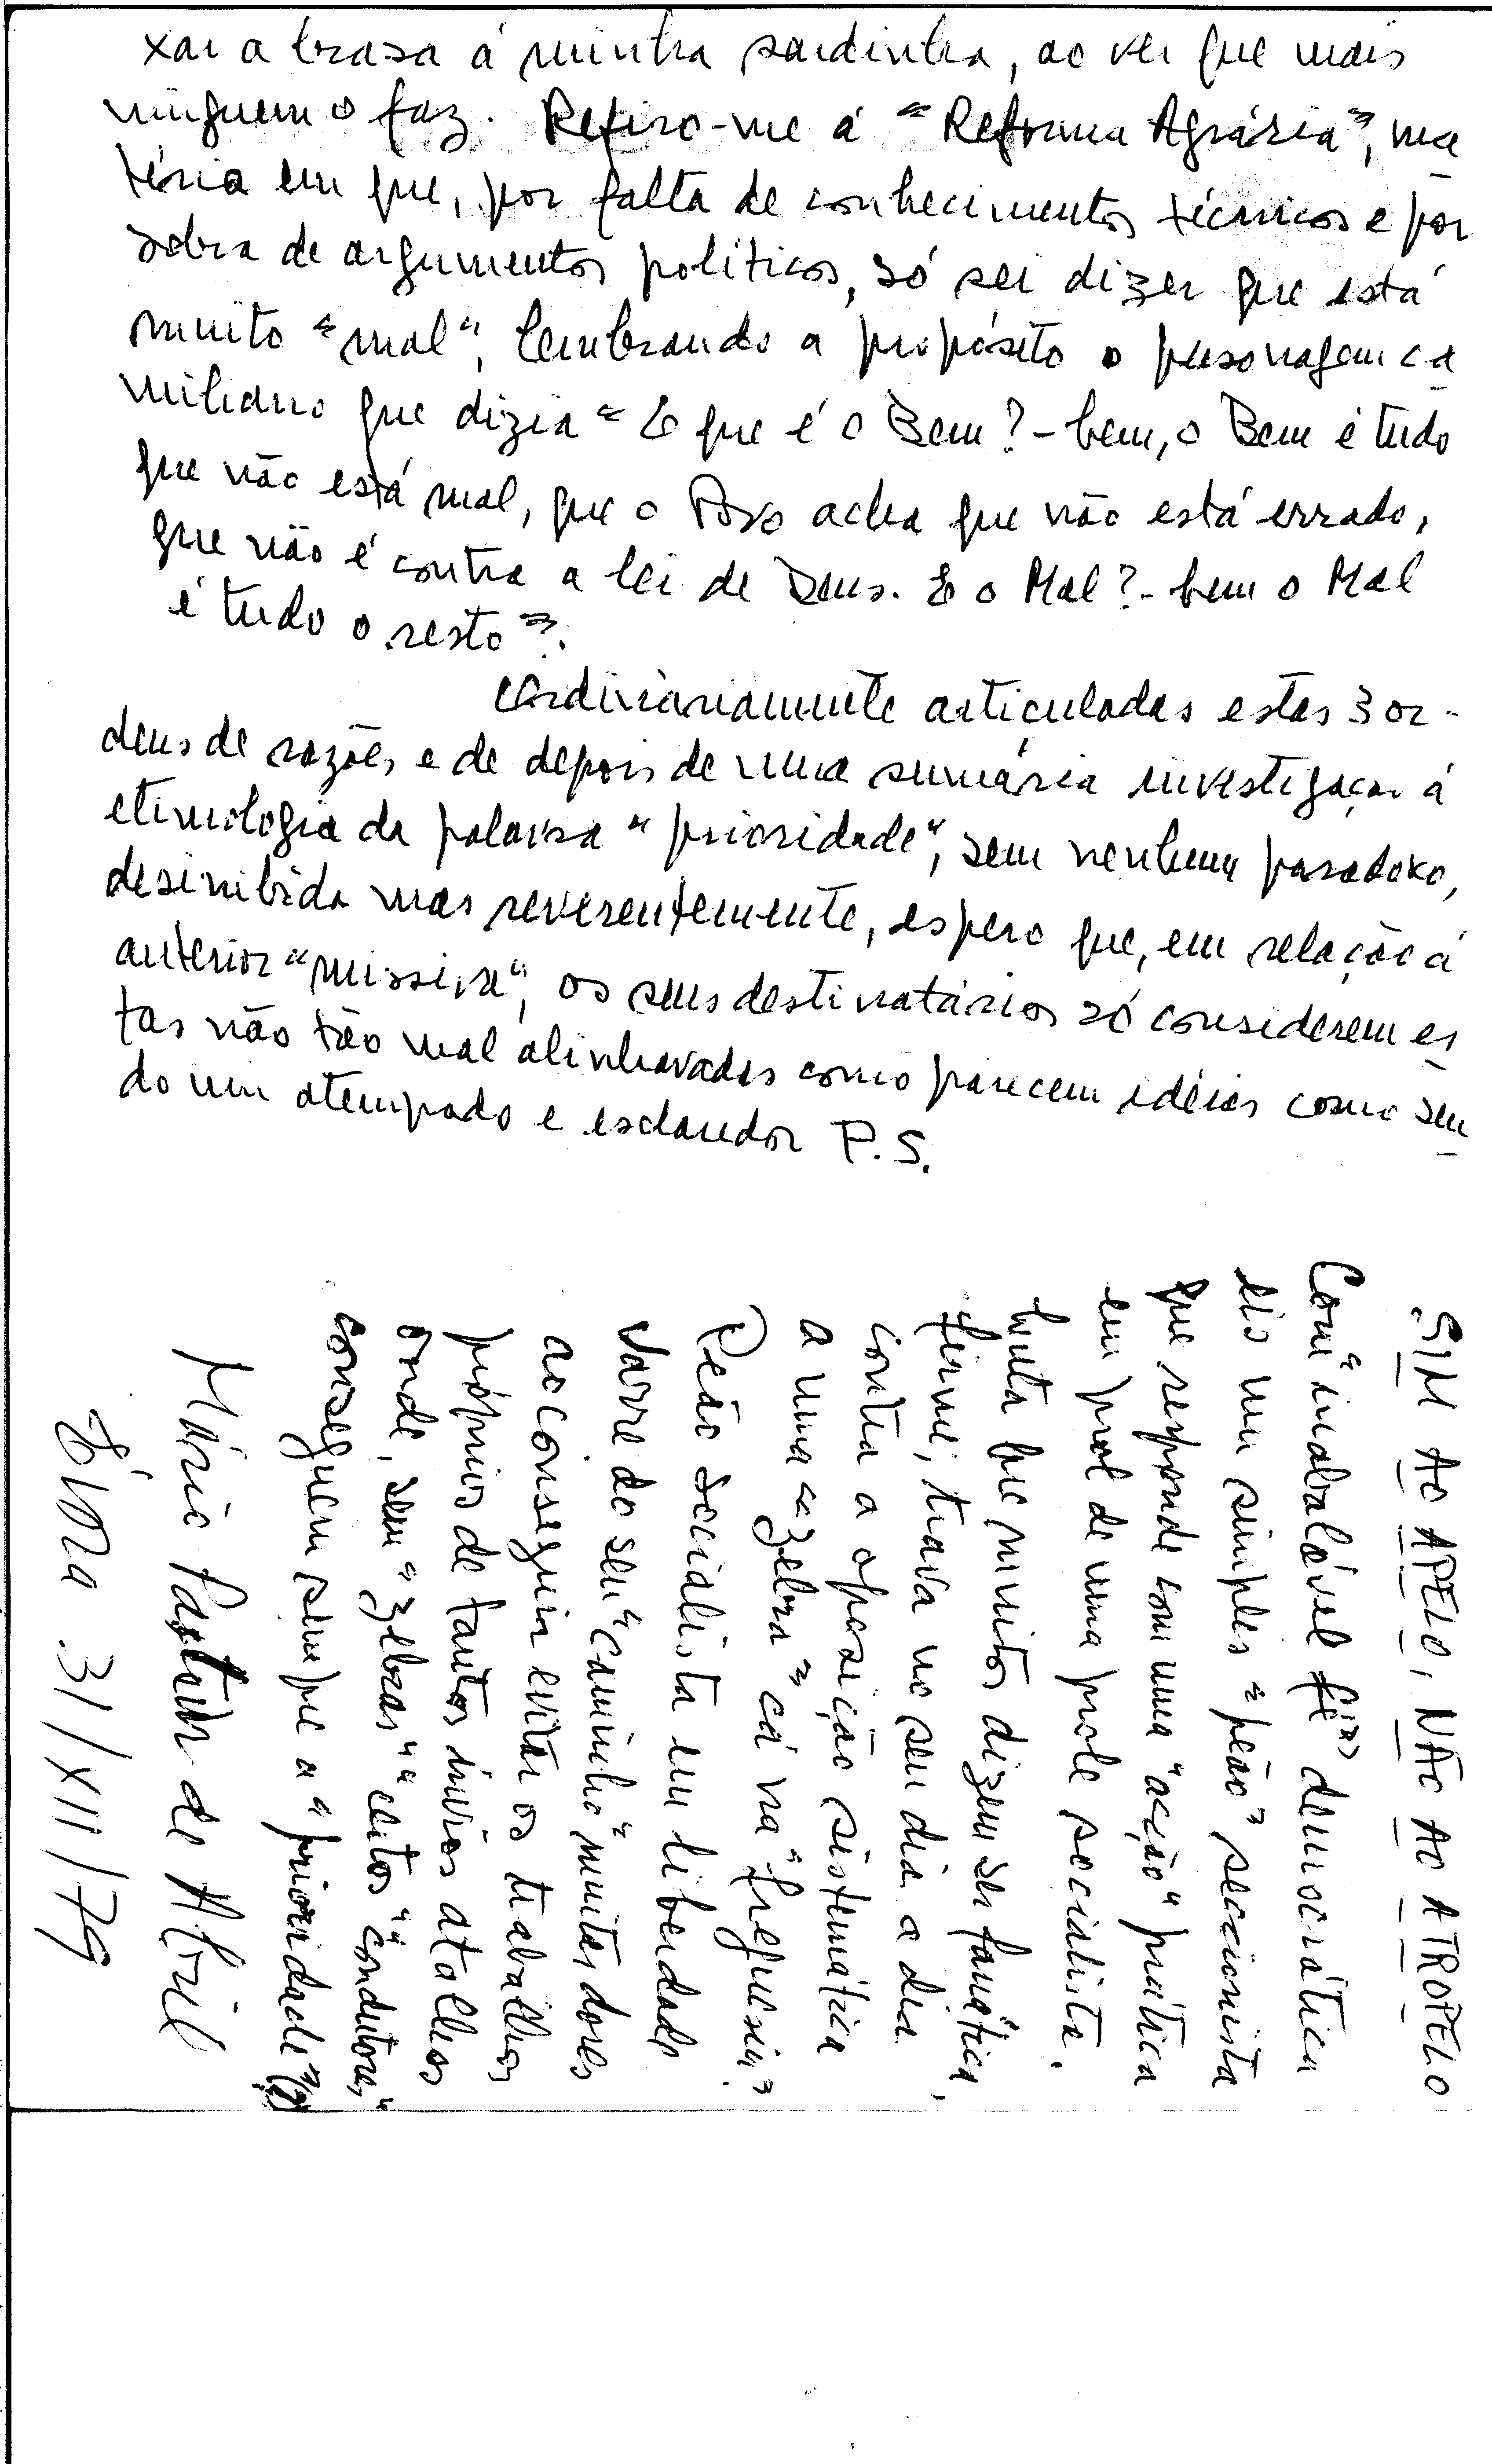 xar a brasa á minha sardinha, ao ver que mais
ninguem o faz. Refiro-me á "Reforma Agrária", ma
téria em que, por falta de conhecimentos técnicos e por
sobra de argumentos políticos, só sei dizer que está
muito "mal", lembrando a propósito o personagem ca
miliano que dizia "E que é o Bem? - bem, o Bem é tudo
que não está mal, que o Povo acha que não está errado,
que não é contra a lei de Deus. E o Mal? - bem o Mal
é tudo o resto".
Ordinariamente articuladas estas 3 or-
dens de razões e de depois de uma sumária investigaçao á
etimologia da palavra "prioridade", sem nenhum paradoxo,
desinibida mas reverentemente, espero que, em relação á
anterior "missiva", os seus destinatários só considerem es
tas não tão mal alinhavadas como parecem idéias como sen
do um atempado e esclaredor P.S.
SIM AO APELO, NÃO AO ATROPELO
Com "inabalável fé" democrática
eis um simples "peão" seccionista
que responde com uma "acção" prática
em prol de uma prole socialista.
Luta que muitos dizem ser fanática,
firme, trava no seu dia a dia
contra a oposição sistemática
a uma "zebra" cá na "freguesia"
Peão socialista em liberdade
varre do seu "caminho" muitas dores
ao conseguir evitar os trabalhos
próprios de tantos ínvios atalhos
onde, sem "zebras" "certos" "condutores"
conseguem sempre a "prioridade"
Mário Pastor de Abril
Évora .31/XII/79